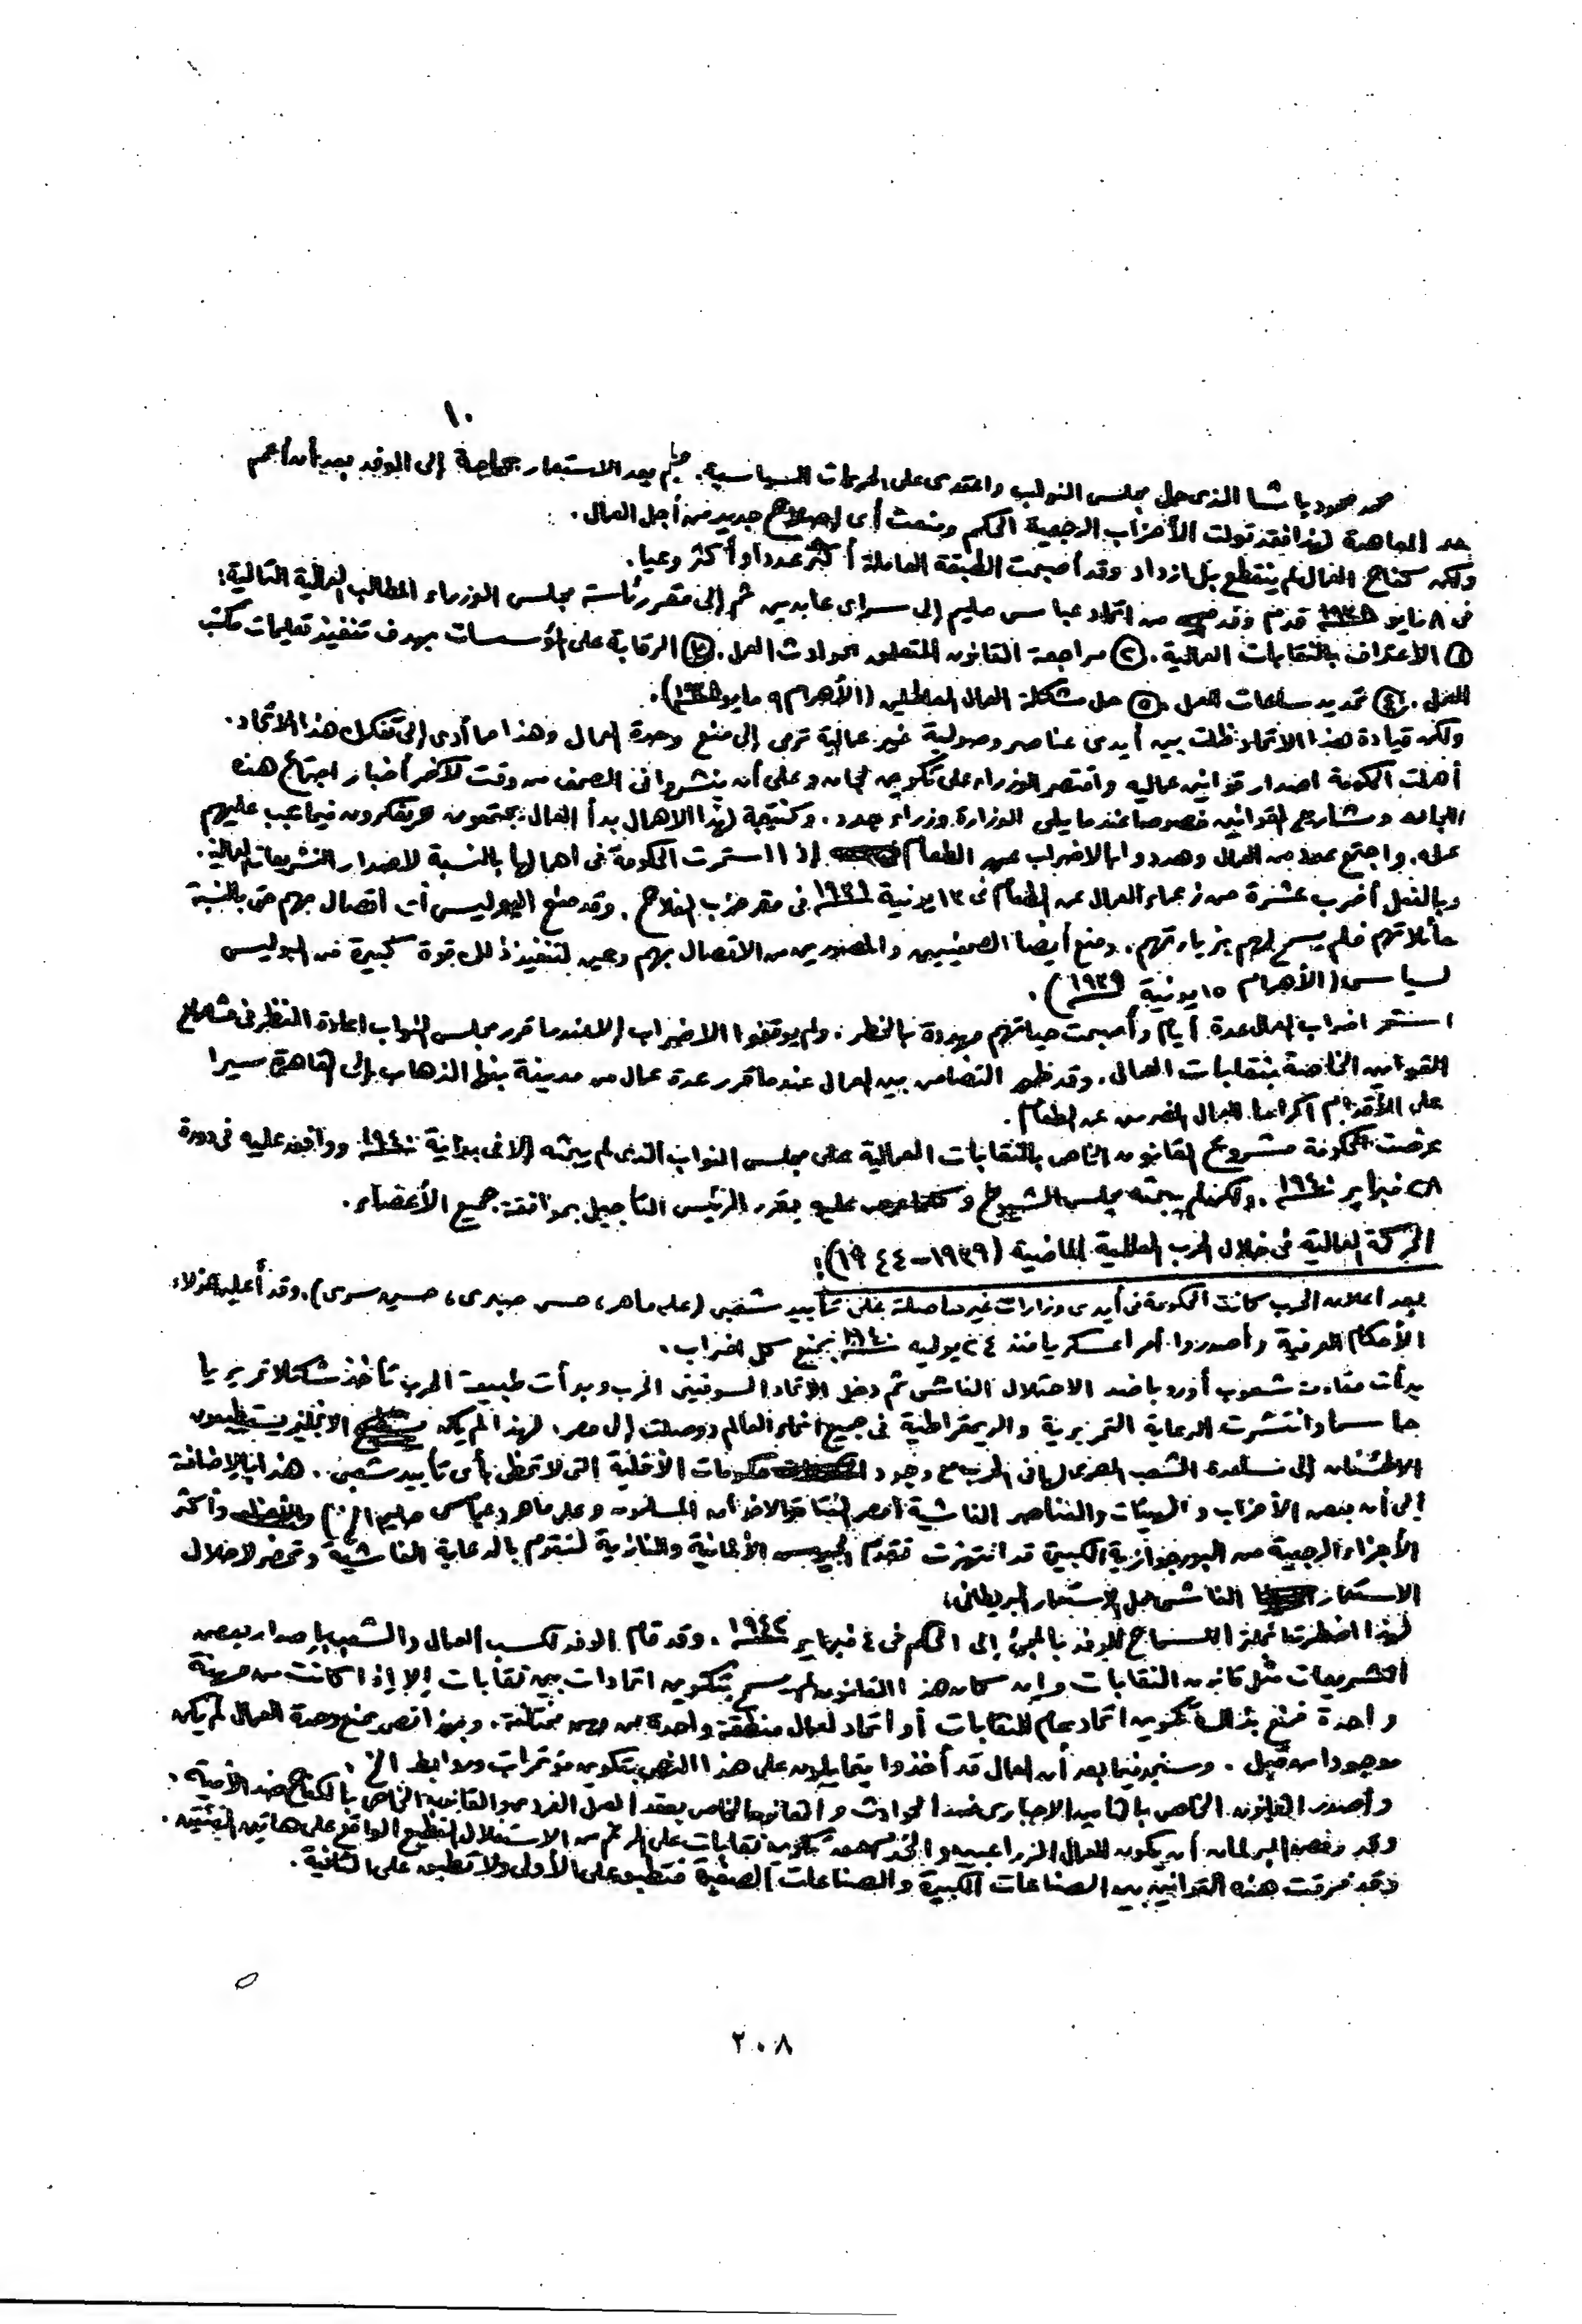 ١٠
محمد محمود باشا الذى حل مجلس النواب واعتدى على الحريات السياسية. ولم يعد الاستعمار بحاجة إلى الوفد بعد أن أمم
عد المعاهدة لهذا فقد تولت الأحزاب الرجعية الحكم ومنعت أى إصلاح جديد من أجل العمال.
ولكن كفاح العمال لم ينقطع بل ازداد وقد أصبحت الطبقة العاملة أكثر عددا وأكثر وعيا.
فى ٨ مايو ١٩٣٨ قدم وفد من اتحاد عباس حليم إلى سراى عابدين ثم إلى مقر رئاسة مجلس الوزراء المطالب العمالية التالية:
(١) الاعتراف بالنقابات العمالية. (٢) مراجعة القانون المتعلق بحوادث العمل. (٣) الرقابة على المؤسسات بهدف تنفيذ تعليمات مكتب
العمل. (٤) تحديد ساعات العمل. (٥) حل مشكلة العمال العاطلين (الأهرام ٩ مايو ١٩٣٨).
ولكن قيادة هذا الاتحاد ظلت بين أيدى عناصر وصولية غير عمالية ترمى إلى منع وحدة العمال وهذا مما أدى إلى تفكك هذا الاتحاد.
أهملت الحكومة اصدار قوانين عماليه واقتصر الوزراء على تكوين لجان وعلى أن ينشروا فى الصحف من وقت لآخر أخبار اجتماع هذه
اللجان ومشاريع القوانين خصوصا عندما يلى الوزارة وزراء جدد. وكنتيجة لهذا الاهمال بدأ العمال يجتمعون ويفكرون فيما يجب عليهم
عمله. واجتمع عدد من العمال وهددوا بالاضراب عن الطعام إذا استمرت الحكومة فى اهمالها بالنسبة لاصدار التشريعات العمالية.
وبالفعل أضرب عشرة من زعماء العمال عن الطعام فى ١٢ يونية ١٩٣٩ فى مقر حزب الفلاح. وقد منع البوليس أى اتصال بهم حتى بالنسبة
لعائلاتهم فلم يسمح لهم بزيارتهم. ومنع أيضا الصحفيين والمصورين من الاتصال بهم وعين لتنفيذ ذلك قوة كبيرة من البوليس
السياسى (الأهرام ١٥ يونية ١٩٣٩).
استمر اضراب العمال عدة أيام وأصبحت حياتهم مهددة بالخطر. ولم يوقفوا الاضراب إلا عندما قرر مجلس النواب اعادة النظر فى مشاريع
القوانين الخاصة بنقابات العمال. وقد ظهر التضامن بين العمال عندما قرر عدة عمال من مدينة بنها الذهاب إلى القاهرة سيرا
على الأقدام اكراما للعمال المضربين عن الطعام.
عرضت الحكومة مشروع القانون الخاص بالنقابات العمالية على مجلس النواب الذى لم يبحثه إلا فى بداية ١٩٤٠ ووافق عليه فى دورة
٢٨ فبراير ١٩٤٠. ولكن لم يبحثه مجلس الشيوخ وكلما عرض عليه يقرر الرئيس التأجيل بموافقة جميع الأعضاء.
الحركة العمالية فى خلال الحرب العالمية الماضية (١٩٣٩-١٩٤٤):
بعد اعلان الحرب كانت الحكومة فى أيدى وزارات غير حاصلة على تأييد شعبى (على ماهر، حسن صبرى، حسين سرى). وقد أعلن هؤلاء
الأحكام العرفية وأصدروا أمرا عسكريا منذ ٢٤ يوليه ١٩٤٠ بمنع كل اضراب.
بدأت مقاومة شعوب أوروبا ضد الاحتلال الفاشى ثم دخل الاتحاد السوفيتى الحرب وبدأت طبيعة الحرب تأخذ شكلا تحريريا
حاسما وانتشرت الدعاية التحريرية والديمقراطية فى جميع انحاء العالم ووصلت إلى مصر. لهذا لم يكن الانجليز يستطيعون
الاطمئنان إلى مساعدة الشعب المصرى لها فى الحرب مع وجود حكومات الأقلية التى لا تحظى بأى تأييد شعبى. هذا بالإضافة
إلى أن بعض الأحزاب والهيئات والعناصر الفاشية (مصر الفتاة والاخوان المسلمون وعلى ماهر وعباس حليم الخ) وأكثر
الأجزاء الرجعية من البورجوازية الكبيرة قد انتهزت تقدم الجيوش الألمانية والنازية لتقوم بالدعاية الفاشية وتحضر لاحلال
الاستعمار الفاشى محل الاستعمار البريطانى.
لهذا اضطر الانجليز للسماح للوفد بالمجئ إلى الحكم فى ٤ فبراير ١٩٤٢. وقد قام الوفد لكسب العمال والشعب بإصدار بعض
التشريعات مثل قانون النقابات وإن كان هذا القانون لم يسمح بتكوين اتحادات بين نقابات إلا إذا كانت من مهنة
واحدة فمنع بذلك تكوين اتحاد عام للنقابات أو اتحاد لعمال منطقة واحدة من مهن مختلفة. وهذا نص يمنع وحدة العمال لم يكن
موجودا من قبل. وسنجد فيما بعد أن العمال قد أخذوا يتحايلون على هذا النص بتكوين مؤتمرات وروابط الخ.
وأصدر القانون الخاص بالتأمين الاجبارى ضد الحوادث والقانون الخاص بعقد العمل الفردى والقانون الخاص بالكفاح ضد الأمية.
وقد رفض البرلمان أن يكون للعمال الزراعيين والخدم حق تكوين نقابات على الرغم من الاستغلال الفظيع الواقع على هاتين الفئتين.
وقد فرقت هذه القوانين بين الصناعات الكبيرة والصناعات الصغيرة فتطبق على الأولى ولا تطبق على الثانية.
٢٠٨